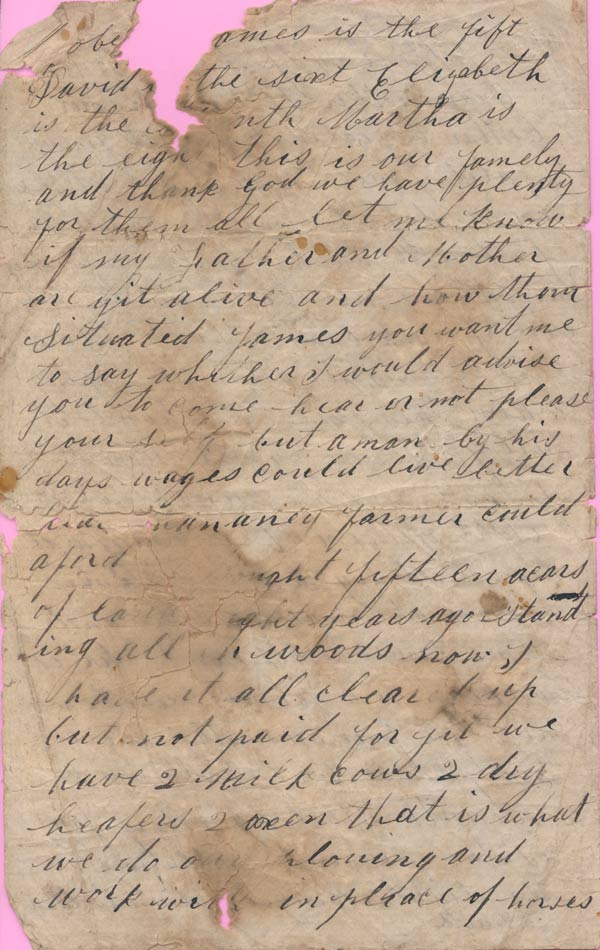 Robe ames is the fift
David the sixt Elizabeth
is the nth Martha is
the eigh This is our famely
and thank God we have plenty
for them all let me know
if my Father and Mother
are yit alive and how them
Situated James you want me
to say whither I would advise
you to come hear or not please
your self but a man by his
days wages could live better
hear than aney farmer could
aford ught fifteen acars
of la ght years ago stand
ing all in woods now I
have it all cleared up
but not paid for yit we
have 2 milk cows 2 dry
heafers 2 oxen that is what
we do our plowing and
work with in pleace of horses